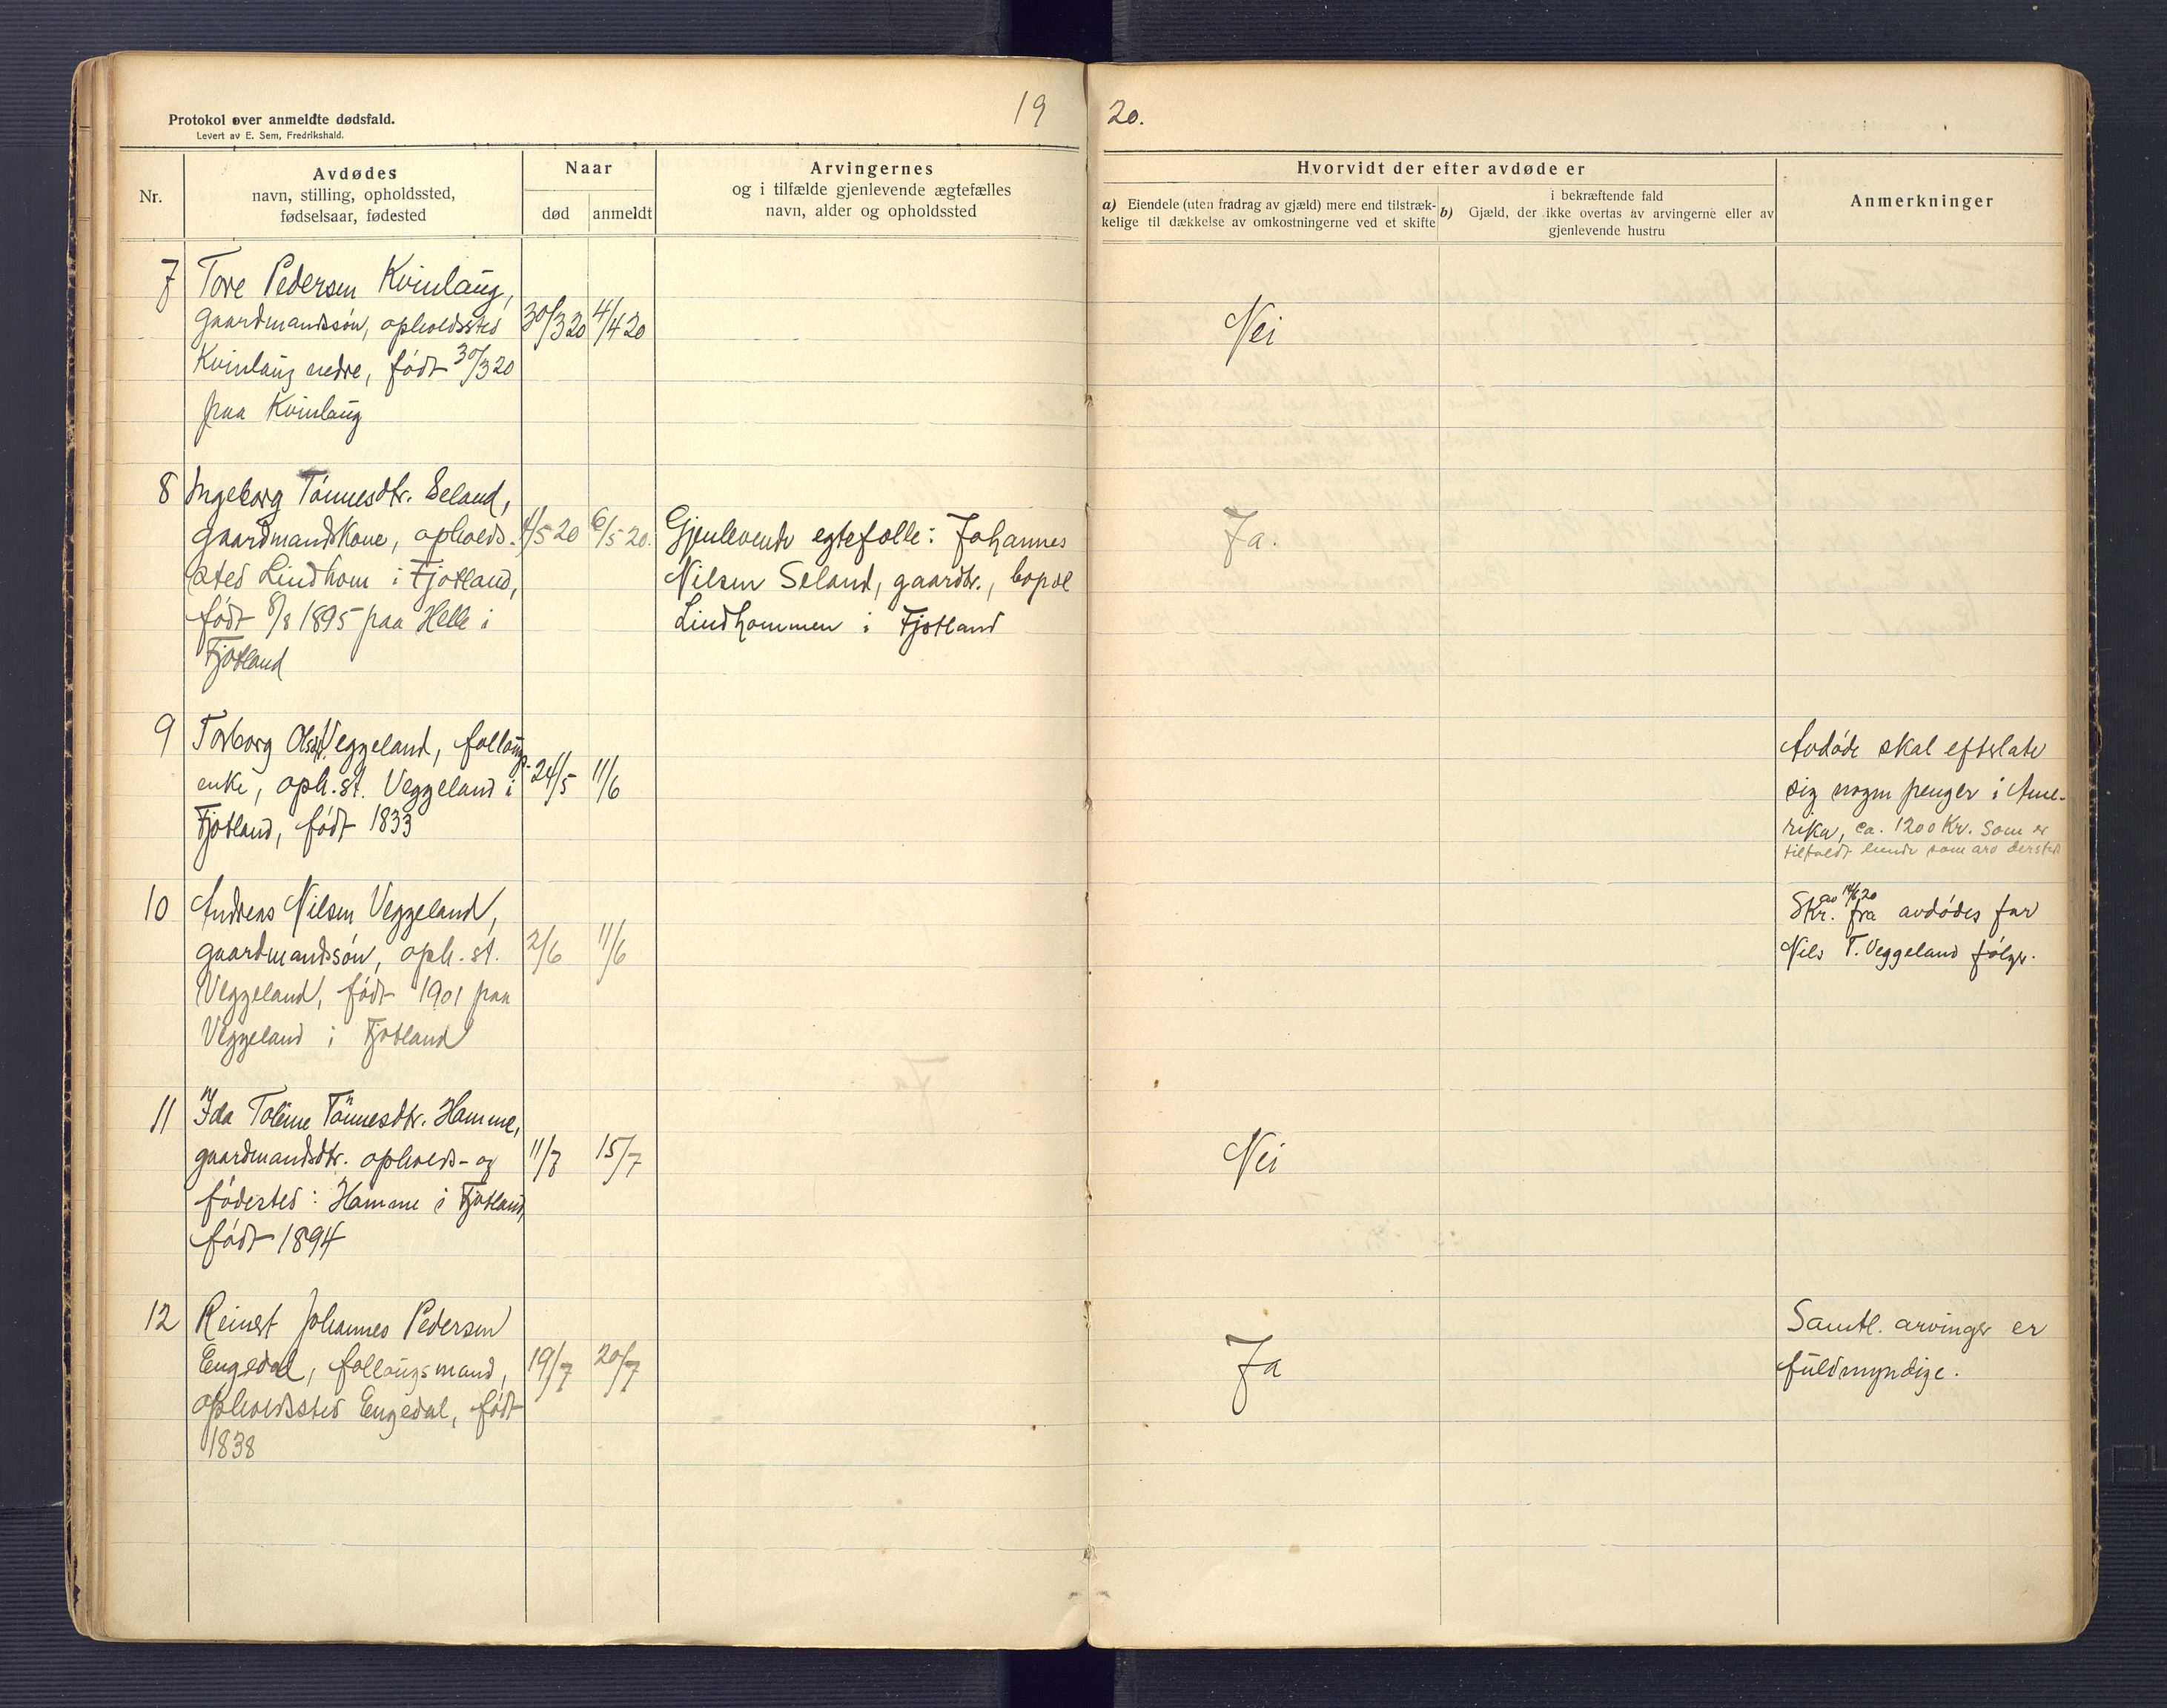 Protokol over anmeldte dødsfald.
Levert av E. Sem, Fredrikshald.
19
Nr.
Avdødes
navn, stilling, opholdssted,
fødselsaar, fødested
Naar
død
anmeldt
Arvingernes
og i tilfælde gjenlevende ægtefælles
navn, alder og opholdssted
7
Tore Pedersen Kvinlaug,
gaardmandssøn, opholdssted
Kvinlaug nedre, født 30/3 20
paa Kvinlaug
30/3 20
4/4 20
8
Ingeborg Tønnesdtr. Seland,
gaardmandskone, opholds-
sted Lindhom i Fjotland,
født 8/8 1895 paa Helle i
Fjotland
4/5 20
6/5 20.
Gjenlevende egtefælle: Johannes
Nilsen Seland, gaardbr., bopæl
Lindhommen i Fjotland
9
Torborg Olsdtr. Veggeland, follaugs-
enke, oph.st. Veggeland i
Fjotland, født 1833
24/5
11/6
10
Andreas Nilsen Veggeland,
gaardmandssøn, oph. st.
Veggeland, født 1901 paa
Veggeland i Fjotland
2/6
11/6
11
Ida Toline Tønnesdtr. Homme,
gaardmandsdtr. opholds- og
fødested: Homme i Fjotland,
født 1894
11/7
15/7
12
Reinert Johannes Pedersen
Engedal, follaugsmand,
opholdssted Engedal, født
1838
19/7
20/7
20.
Hvorvidt der efter avdøde er
a) Eiendele (uten fradrag av gjæld) mere end tilstræk-
kelige til dækkelse av omkostningerne ved et skifte
i bekræftende fald
b) Gjæld, der ikke overtas av arvingerne eller av
gjenlevende hustru
Anmerkninger
Nei
Ja.
Avdøde skal efterlate
sig nogen penger i Ame-
rika, ca. 1200 Kr. som er
tilfaldt hende som arv dersted
Skr. av 14/6 20 fra avdødes far
Nils T. Veggeland følger.
Nei
Ja
Samtl. arvinger er
fuldmyndige.